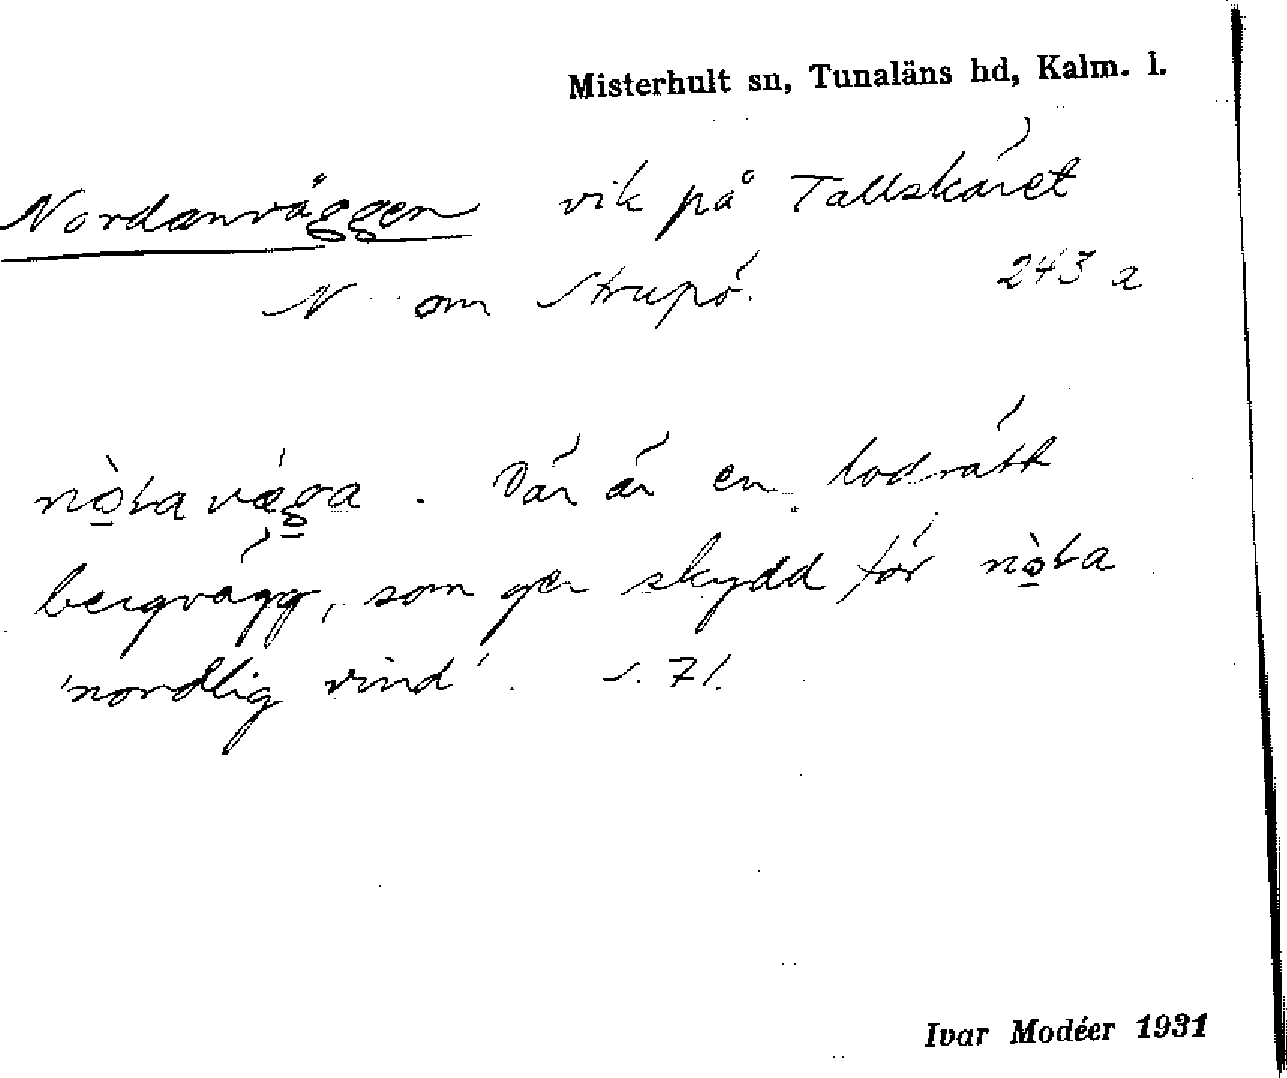 Misterhult sn, Tunaläns hd, Kalm. l.
Nordanväggen vik på Tallskäret
N om Strupö. 243 a
Där är en lodrätt
bergvägg, som ger skydd för
'nordlig vind'. s. 71.
Ivar Modéer 1931